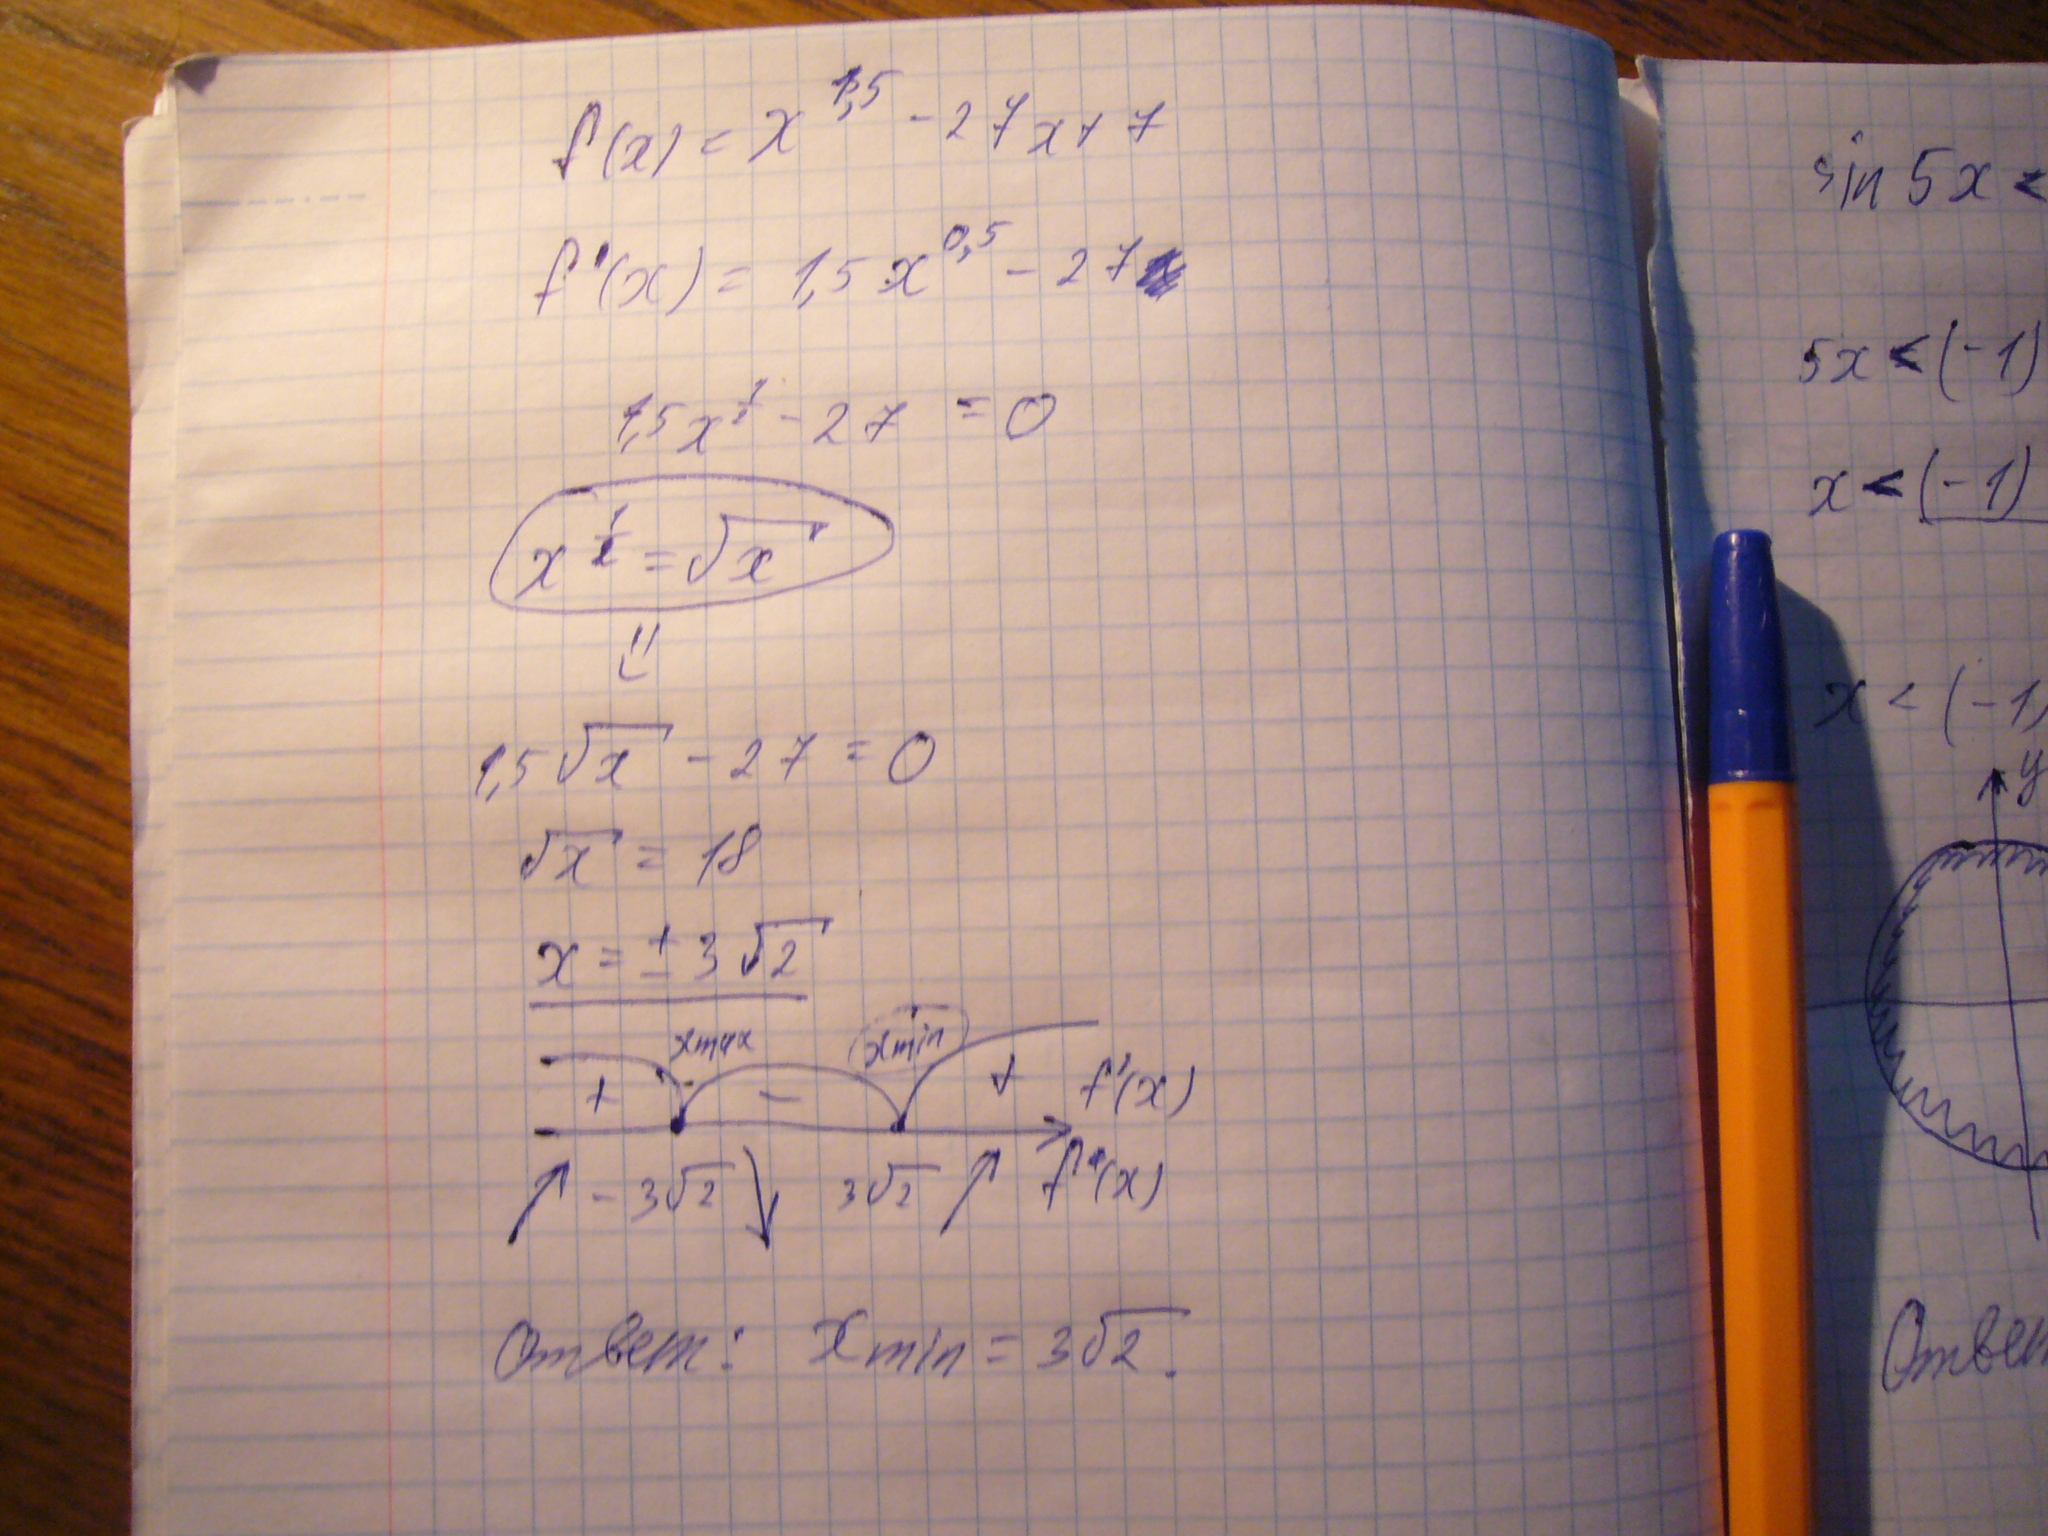 f(x) = x^1,5 - 27x + 7
f'(x) = 1,5x^0,5 - 27
1,5x^½ - 27 = 0
x^½ = √x
1,5√x - 27 = 0
√x = 18
x = ± 3√2
xmax xmin
+ - + f'(x)
- 3√2 3√2 f(x)
Ответ: xmin = 3√2.
sin 5x <
5x < (-1)
x < (-1)
x < (-1)
y
Ответ